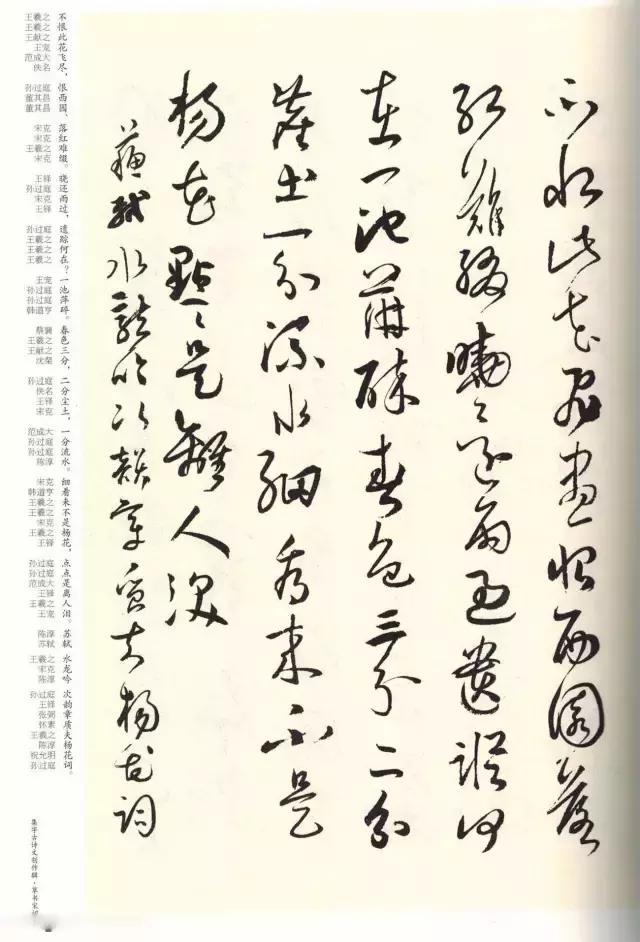 不恨此花飛盡恨西園落
紅難綴曉還雨過遺蹤何
在一池萍碎春色三分二分
塵土一分流水細看来不是
楊花點點是離人淚
蘇軾水龍吟次韵章質夫楊花詞
不恨此花飞尽，恨西园、落红难缀。晓还雨过，遗踪何在？一池萍碎。春色三分，二分尘土，一分流水。细看来不是杨花，点点是离人泪。苏轼 水龙吟 次韵章质夫杨花词。
王羲之
王羲之
王献之
王宠
范成大
佚名
孙过庭
董其昌
董其昌
宋克
宋克
王羲之
宋克
王铎
孙过庭
宋克
王铎
孙过庭
王羲之
王羲之
王羲之
王宠
孙过庭
孙过庭
韩道亨
蔡襄
王羲之
王献之
沈粲
孙过庭
佚名
王铎
宋克
范成大
孙过庭
孙过庭
陈淳
宋克
韩道亨
王羲之
王羲之
宋克
王羲之
王铎
孙过庭
孙过庭
范成大
王铎
王羲之
王宠
陈淳
苏轼
王羲之
宋克
陈淳
孙过庭
王铎
张弼
怀素
王羲之
陈淳
祝允明
孙过庭
集字古诗文创作辑·草书宋词